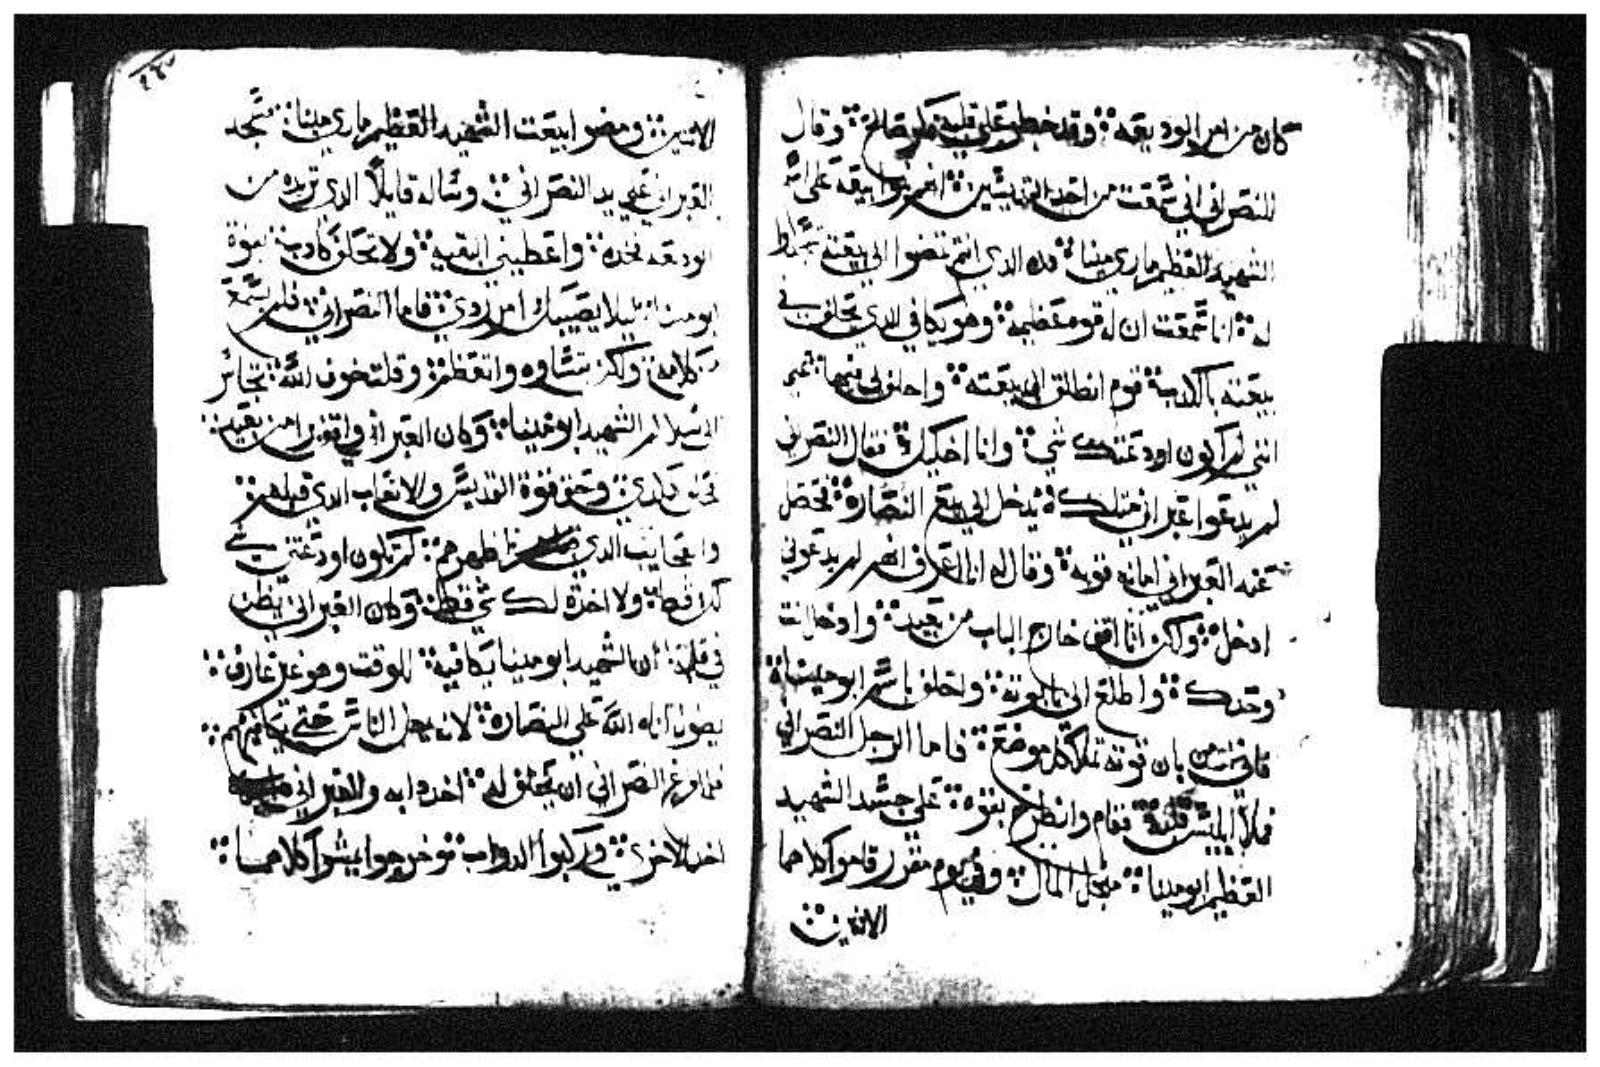 كان من امر الوديعه ⁘ وقد خطر علي قلبه فكر صالح ⁘ وقال
للنصراني اني سمعت من احد القديسين ⁘ انهم بنوا بيعه علي اسم
الشهيد العظيم ماري مينا ⁘ هذه الذي انتم تمضوا الي بيعته
له ⁘ انا سمعت ان له قوه عظيمه ⁘ وهو يكافي الذي يحلف في
بيعته بالكدب ⁘ قوم انطلق الي بيعته ⁘ واحلف لي فيها
انني لم اكون اودعتك شي ⁘ وانا اخليك ⁘ فقال النصراني
لم يدعوا عبراني مثلك ⁘ يدخل الي بيع النصاره ⁘ فحصل
عند العبراني امانه قويه ⁘ وقال له انا اعرف انهم لم يدعوني
ادخل ⁘ ولكن انا اقف خارج الباب من بعيد ⁘ وادخل انت
وحدك ⁘ واطلع الي تابوته ⁘ واحلف باسم ابو مينا ⁘
فاني مومن بان قوته تملا كل موضع ⁘ فاما الرجل النصراني
فملا ابليس قلبه ⁘ فقام وانطرح بقوه ⁘ علي جسد الشهيد
العظيم ابو مينا ⁘ من اجل المال ⁘ وفي يوم مقرر قاموا كلاهما
الاثنين ⁘
الاثنين ⁘ ومضوا لبيعت الشهيد العظيم ماري مينا ⁘
العبراني علي يد النصراني ⁘ وساله قايلا الذي تريده من
الوديعه خده ⁘ واعطيني البقيه ⁘ ولا تحلف كادبا ⁘ بقوة
ابو مينا ⁘ ليلا يصيبك امر ردي ⁘ فاما النصراني ⁘ فلم يسمع
كلامه ⁘ ولكن قساوه وانعظم ⁘ وقلت خوف الله ⁘
الشهيد ابو مينا ⁘ وكان العبراني واقف من بعيد ⁘
وحق قوة القديس والاتعاب الذي قبلهم ⁘
والعجايب الذي اظهرهم ⁘ لم تكون اودعتني شي
كدا قط ⁘ ولا اخدة لك شي قط ⁘ وكان العبراني يظن
في قلبه ⁘ ان الشهيد ابو مينا يكافيه ⁘ للوقت وهو غير عارف ⁘
بطول اناه الله علي النصاره ⁘ لانه يمهل الناس حتي يكافيهم ⁘
فلما فرغ النصراني ان يحلف له ⁘ اخد دابه والعبراني
اخد الاخري ⁘ وركبوا الدواب ⁘ وخرجوا يمشوا كلاهما ⁘